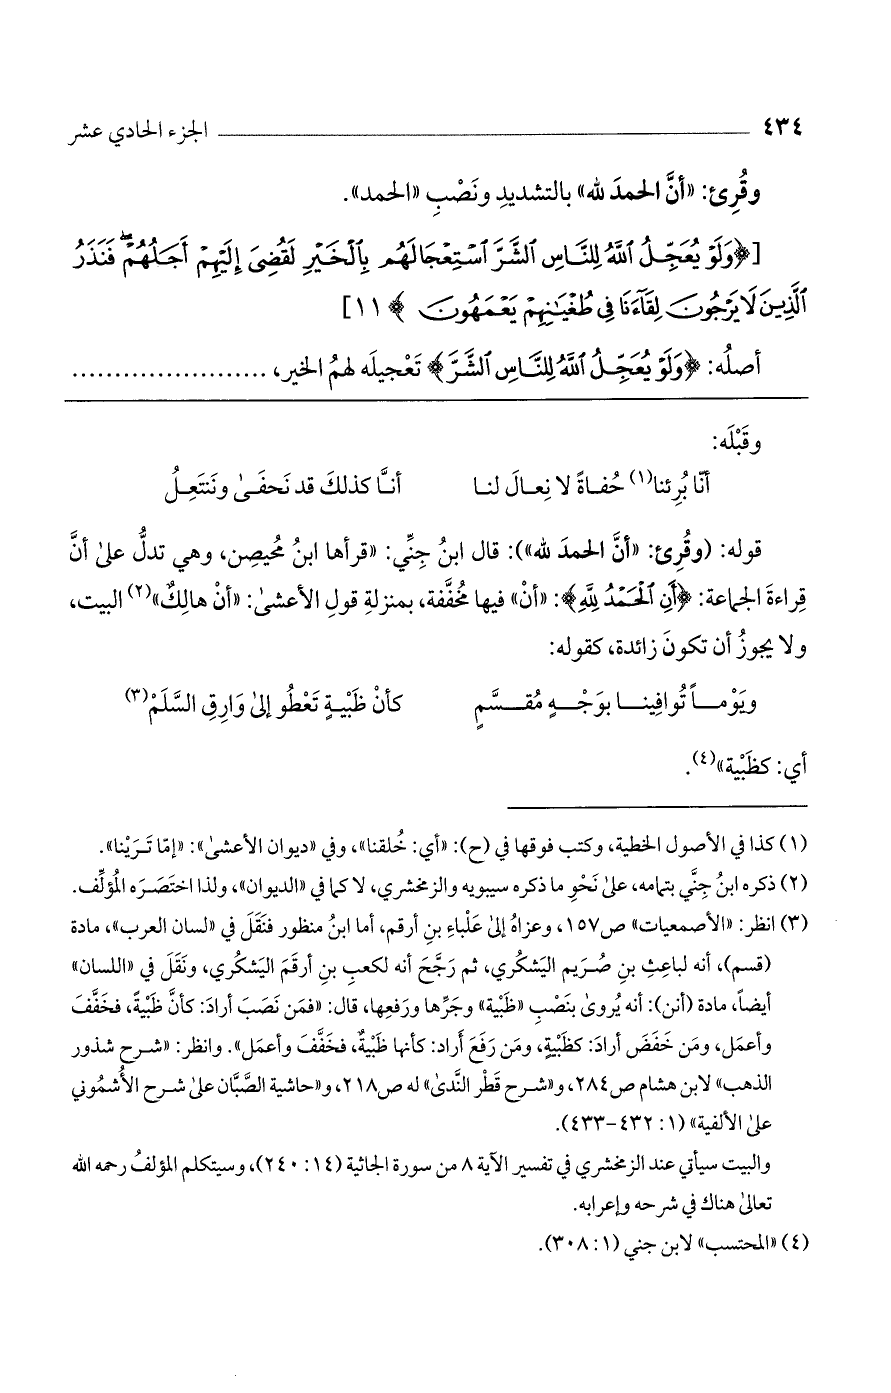 ٤٣٤ الجزء الحادي عشر
وقُرِئ: «أنَّ الحمدَ لله» بالتشديدِ ونَصْبِ «الحمد».
[﴿وَلَوْ يُعَجِّلُ ٱللَّهُ لِلنَّاسِ ٱلشَّرَّ ٱسْتِعْجَالَهُم بِٱلْخَيْرِ لَقُضِىَ إِلَيْهِمْ أَجَلُهُمْ ۖ فَنَذَرُ
ٱلَّذِينَ لَا يَرْجُونَ لِقَآءَنَا فِى طُغْيَـٰنِهِمْ يَعْمَهُونَ ﴾ ١١]
أصلُه: ﴿وَلَوْ يُعَجِّلُ ٱللَّهُ لِلنَّاسِ ٱلشَّرَّ﴾ تَعْجيلَه لهمُ الخير، .......................
وقَبْلَه:
أنّا بُرِئنا(١) حُفـاةً لا نِعـالَ لنـا أنـَّا كذلكَ قد نَحفَـىٰ ونَنتَعِـلُ
قوله: (وقُرِئ: «أنَّ الحمدَ لله»): قال ابنُ جِنِّي: «قرأها ابنُ مُحيصِن، وهي تدلُّ علىٰ أنَّ
قِراءةَ الجماعة: ﴿أَنِ ٱلْحَمْدُ لِلَّهِ﴾: «أنْ» فيها مُخفَّفة، بمنزلةِ قولِ الأعشىٰ: «أنْ هالِكٌ»(٢) البيت،
ولا يجوزُ أن تكونَ زائدة، كقوله:
ويَوْمــاً تُوافِينــا بوَجْــهٍ مُقــسَّمٍ كأنْ ظَبْيـةٍ تَعْطُو إلىٰ وَارِقِ السَّلَمْ(٣)
أي: كظَبْية»(٤).
(١) كذا في الأصول الخطية، وكتب فوقها في (ح): «أي: خُلقنا»، وفي «ديوان الأعشىٰ»: «إمّا تَـرَيْنا».
(٢) ذكره ابنُ جِنَّي بتمامه، علىٰ نَحْوِ ما ذكره سيبويه والزمخشري، لا كما في «الديوان»، ولذا اختَصَـرَه المُؤلِّف.
(٣) انظر: «الأصمعيات» ص١٥٧، وعزاهُ إلىٰ عَلْباءِ بنِ أرقم، أما ابنُ منظور فنَقَلَ في «لسان العرب»، مادة
(قسم)، أنه لباعِثِ بنِ صُـرَيم اليَشكُري، ثم رَجَّحَ أنه لكعبِ بنِ أرقَمَ اليَشكُري، ونَقَلَ في «اللسان»
أيضاً، مادة (أنن): أنه يُروىٰ بنَصْبِ «ظَبْية» وجَرِّها ورَفعِها، قال: «فمَن نَصَبَ أرادَ: كأنَّ ظَبْيةً، فخَفَّفَ
وأعمَل، ومَن خَفَضَ أرادَ: كظَبْيةٍ، ومَن رَفَعَ أَراد: كأنها ظَبْيةٌ، فخَفَّفَ وأعمَل». وانظر: «شـرح شذور
الذهب» لابن هشام ص٢٨٤، و«شـرح قَطْر النَّدىٰ» له ص٢١٨، و«حاشية الصَّبَّان علىٰ شـرح الأُشمُوني
علىٰ الألفية» (١: ٤٣٢-٤٣٣).
والبيت سيأتي عند الزمخشري في تفسير الآية ٨ من سورة الجاثية (١٤: ٢٤٠)، وسيتكلم المؤلفُ رحمه الله
تعالىٰ هناك في شرحه وإعرابه.
(٤) «المحتسب» لابن جني (١: ٣٠٨).